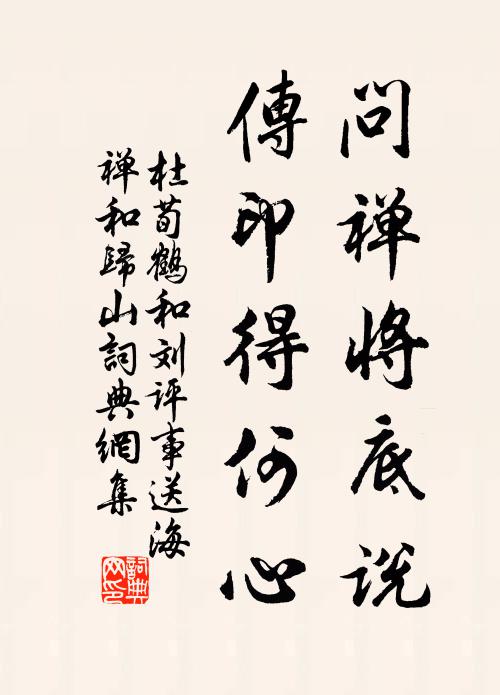 问禅将底说
傳印得何心
杜荀鶴和刘评事送海
禅和歸山詞典網集
詞典
网印